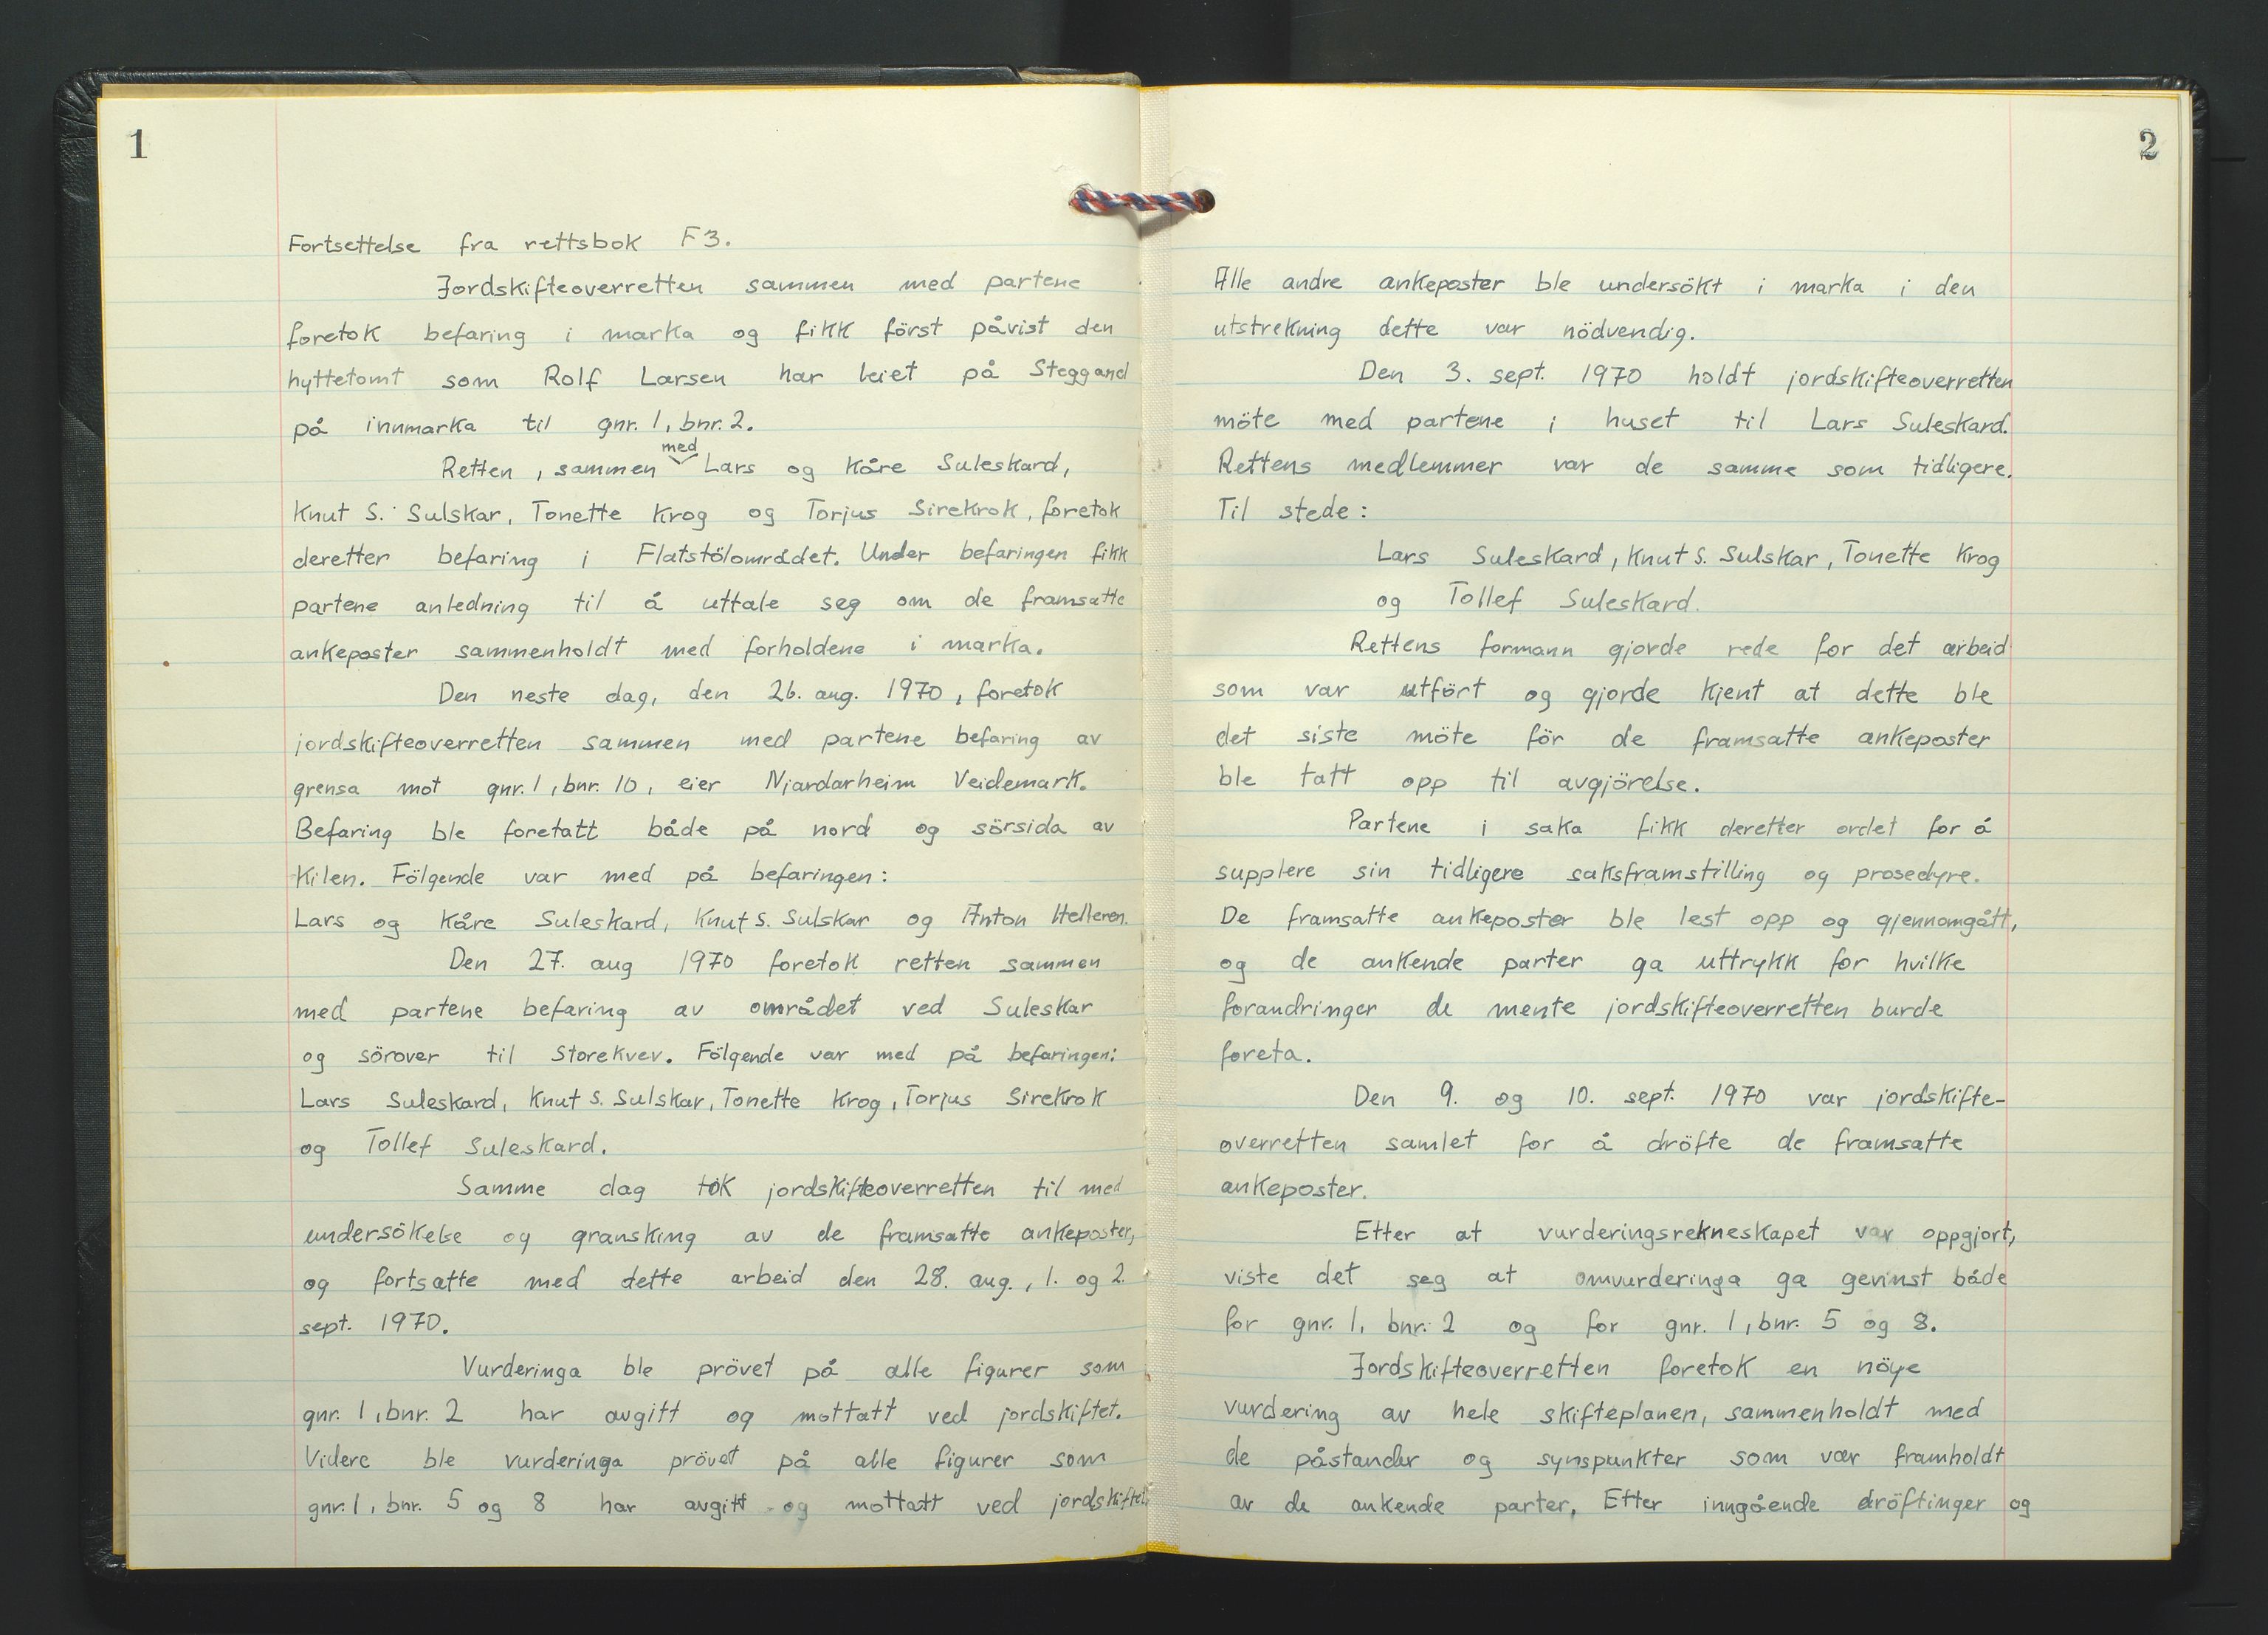 1
Fortsettelse fra rettsbok F3.
Jordskifteoverretten sammen med partene
foretok befaring i marka og fikk först påvist den
hyttetomt som Rolf Larsen har leiet på Steggand
på innmarka til gnr. 1, bnr. 2.
med
Retten, sammen Lars og Kåre Suleskard,
Knut S. Sulskar, Tonette Krog og Torjus Sirekrok, foretok
deretter befaring i Flatstölområdet. Under befaringen fikk
partene anledning til å uttale seg om de framsatte
ankeposter sammenholdt med forholdene i marka.
Den neste dag, den 26. aug. 1970, foretok
jordskifteoverretten sammen med partene befaring av
grensa mot gnr. 1, bnr. 10, eier Njardarheim Veidemark.
Befaring ble foretatt både på nord og sörsida av
Kilen. Fölgende var med på befaringen:
Lars og Kåre Suleskard, Knut S. Sulskar og Anton Helleren.
Den 27. aug 1970 foretok retten sammen
med partene befaring av området ved Suleskar
og sörover til Storekvev. Fölgende var med på befaringen:
Lars Suleskard, Knut S. Sulskar, Tonette Krog, Torjus Sirekrok
og Tollef Suleskard.
Samme dag tok jordskifteoverretten til med
undersökelse og gransking av de framsatte ankeposter,
og fortsatte med dette arbeid den 28. aug., 1. og 2.
sept. 1970.
Vurderinga ble prövet på alle figurer som
gnr. 1, bnr. 2 har avgitt og mottatt ved jordskiftet.
Videre ble vurderinga prövet på alle figurer som
gnr. 1, bnr. 5 og 8 har avgitt og mottatt ved jordskiftet.
2
Alle andre ankeposter ble undersökt i marka i den
utstrekning dette var nödvendig.
Den 3. sept. 1970 holdt jordskifteoverretten
möte med partene i huset til Lars Suleskard.
Rettens medlemmer var de samme som tidligere.
Til stede:
Lars Suleskard, Knut S. Sulskar, Tonette Krog
og Tollef Suleskard.
Rettens formann gjorde rede for det arbeid
som var utfört og gjorde kjent at dette ble
det siste möte för de framsatte ankeposter
ble tatt opp til avgjörelse.
Partene i saka fikk deretter ordet for å
supplere sin tidligere saksframstilling og prosedyre.
De framsatte ankeposter ble lest opp og gjennomgått,
og de ankende parter ga uttrykk for hvilke
forandringer de mente jordskifteoverretten burde
foreta.
Den 9. og 10. sept. 1970 var jordskifte-
overretten samlet for å dröfte de framsatte
ankeposter.
Etter at vurderingsrekneskapet var oppgjort,
viste det seg at omvurderinga ga gevinst både
for gnr. 1, bnr. 2 og for gnr. 1, bnr. 5 og 8.
Jordskifteoverretten foretok en nöye
vurdering av hele skifteplanen, sammenholdt med
de påstander og synspunkter som var framholdt
av de ankende parter. Etter inngående dröftinger og